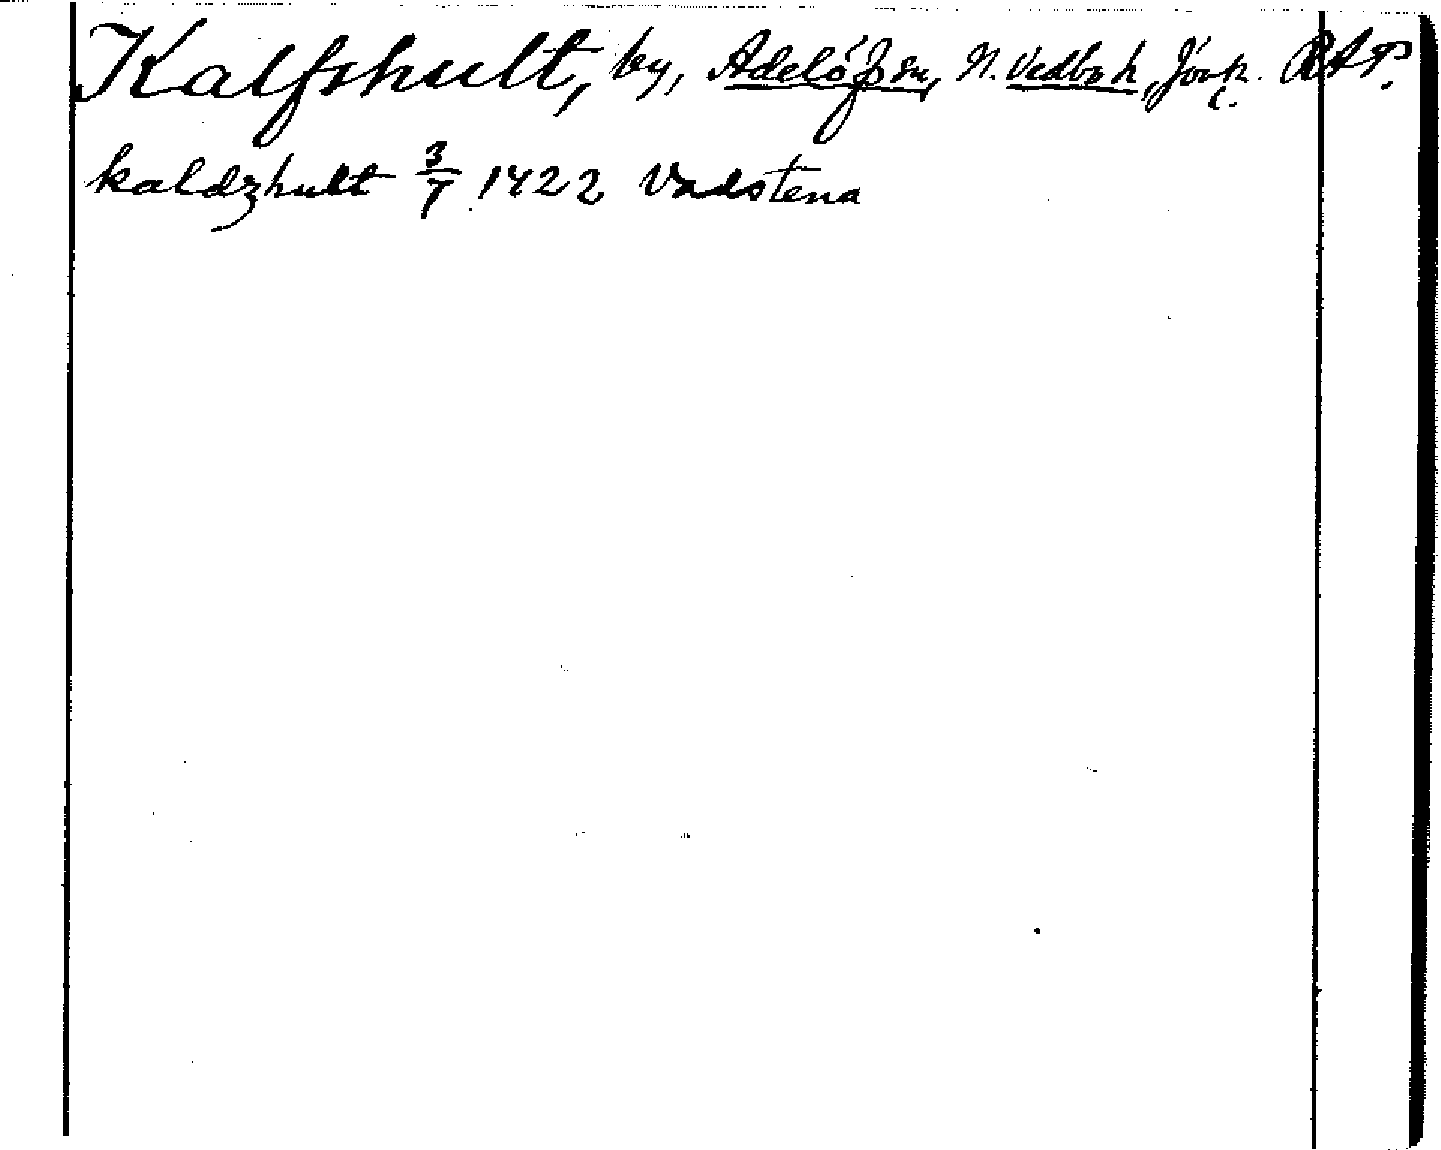 Kalfshult, by, Adelöfs sn, N. Vedbo h, Jönk. RAP.
kaldzhult 3/7 1422 Vadstena